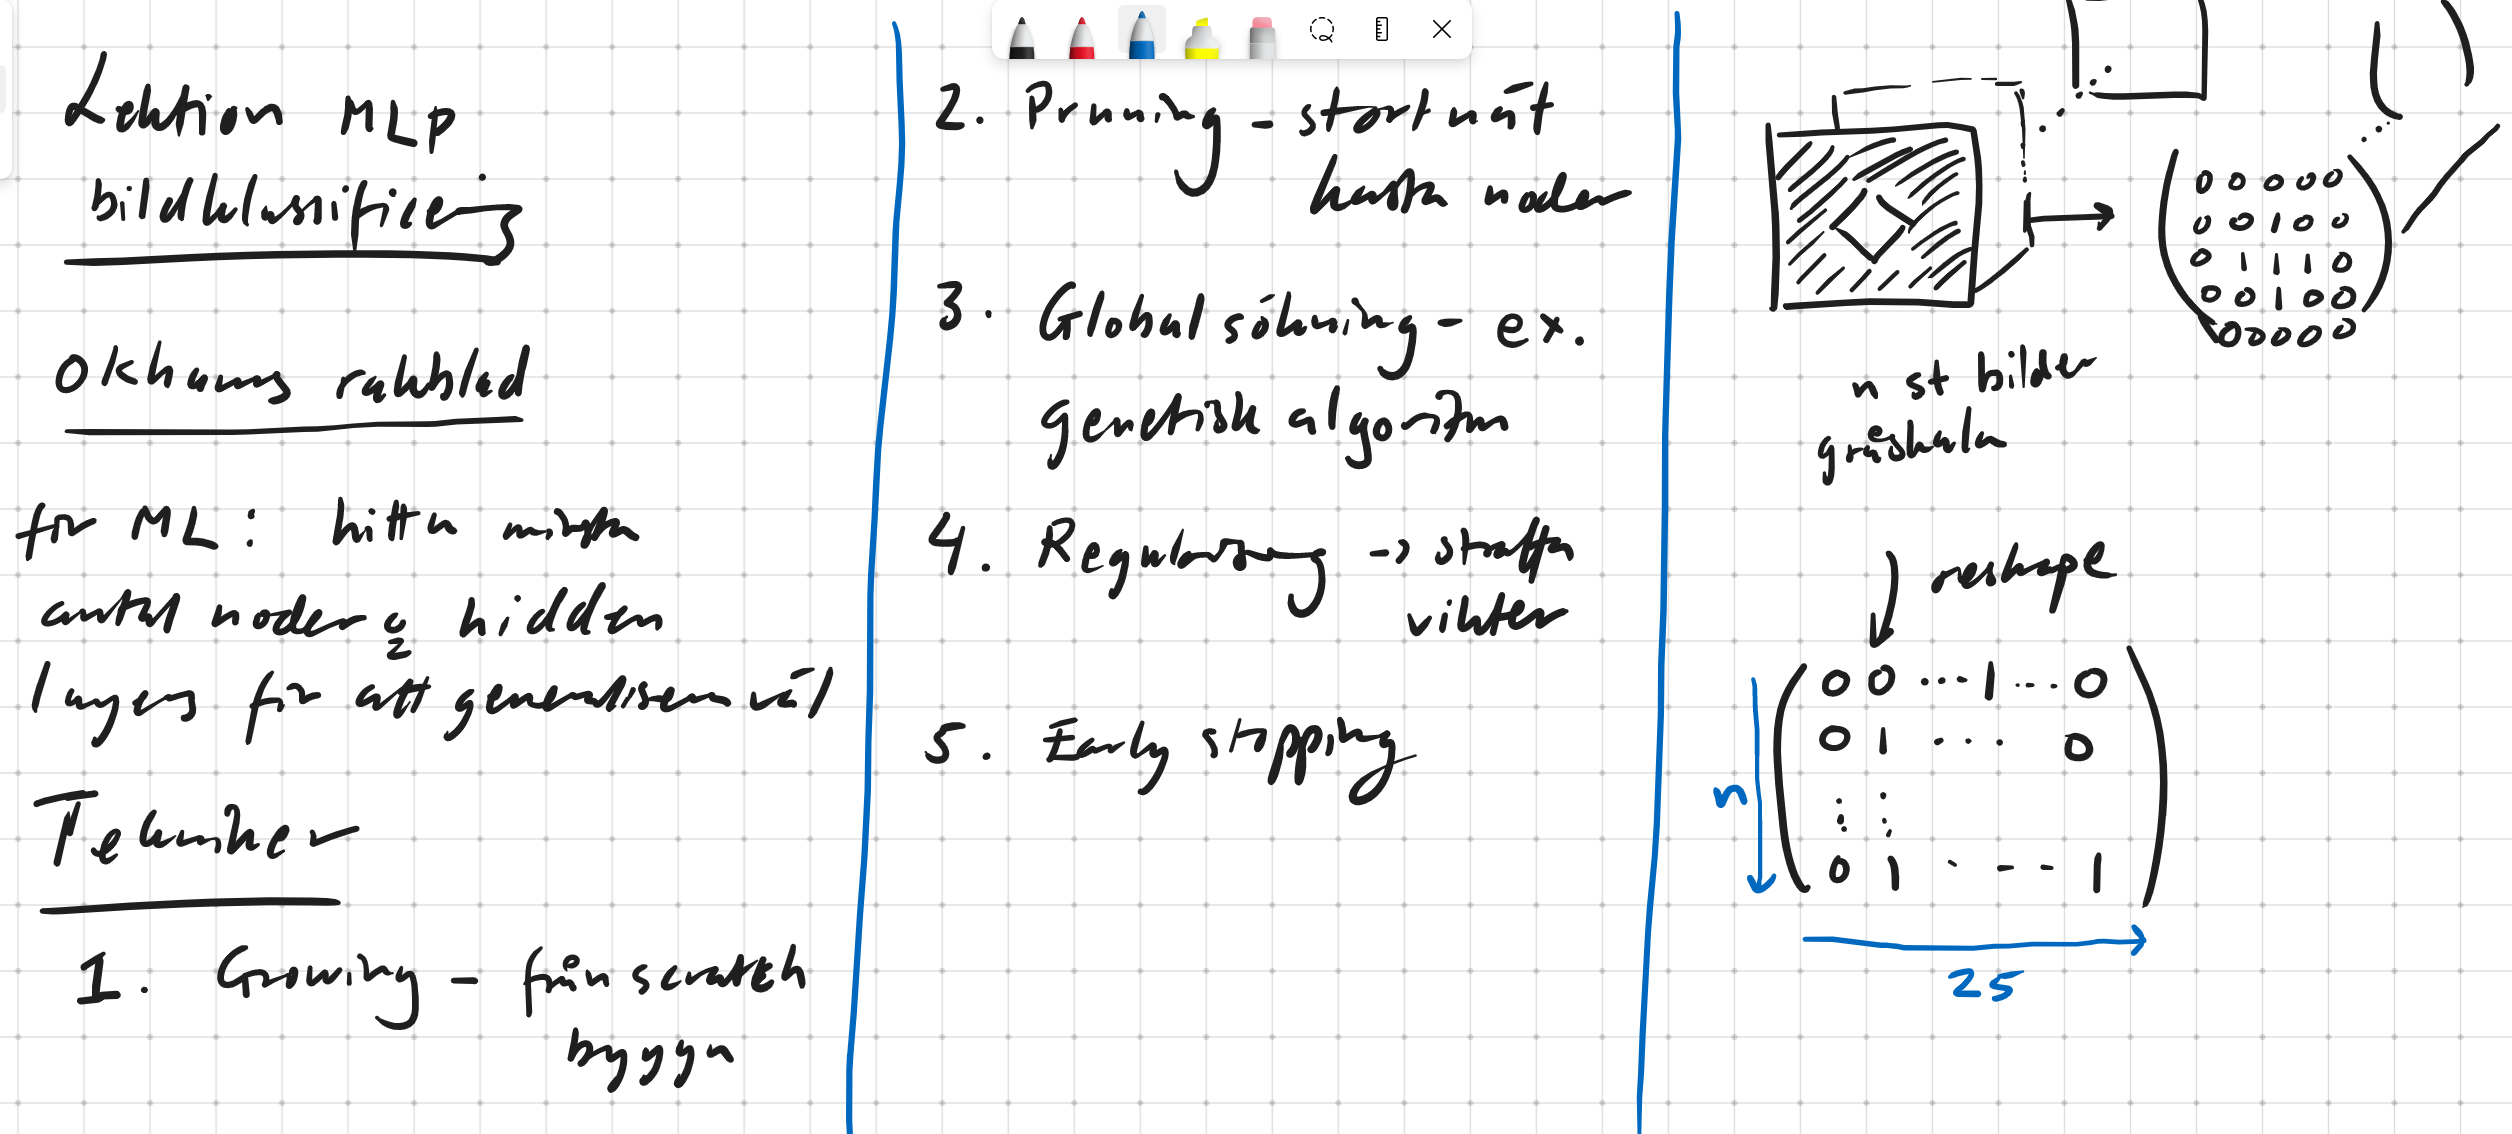 Lektion MLP
bildklassificering
Ockhams rakblad
för ML: hitta minsta
antal noder & hidden
layers för att generalisera väl
Tekniker
1. Growing - från scratch
bygga
2. Pruning - start mät
kapa noder
3. Global sökning - ex.
genetisk algoritm
4. Regularisering -> straffa
vikter
5. Early stopping
0 0 0 0 0
0 0 1 0 0
0 1 1 1 0
0 0 1 0 0
0 0 0 0 0
n st bilder
gråskala
reshape
0 0 ... 1 ... 0
0 1 ... 0
0 1 ... 1
n
25